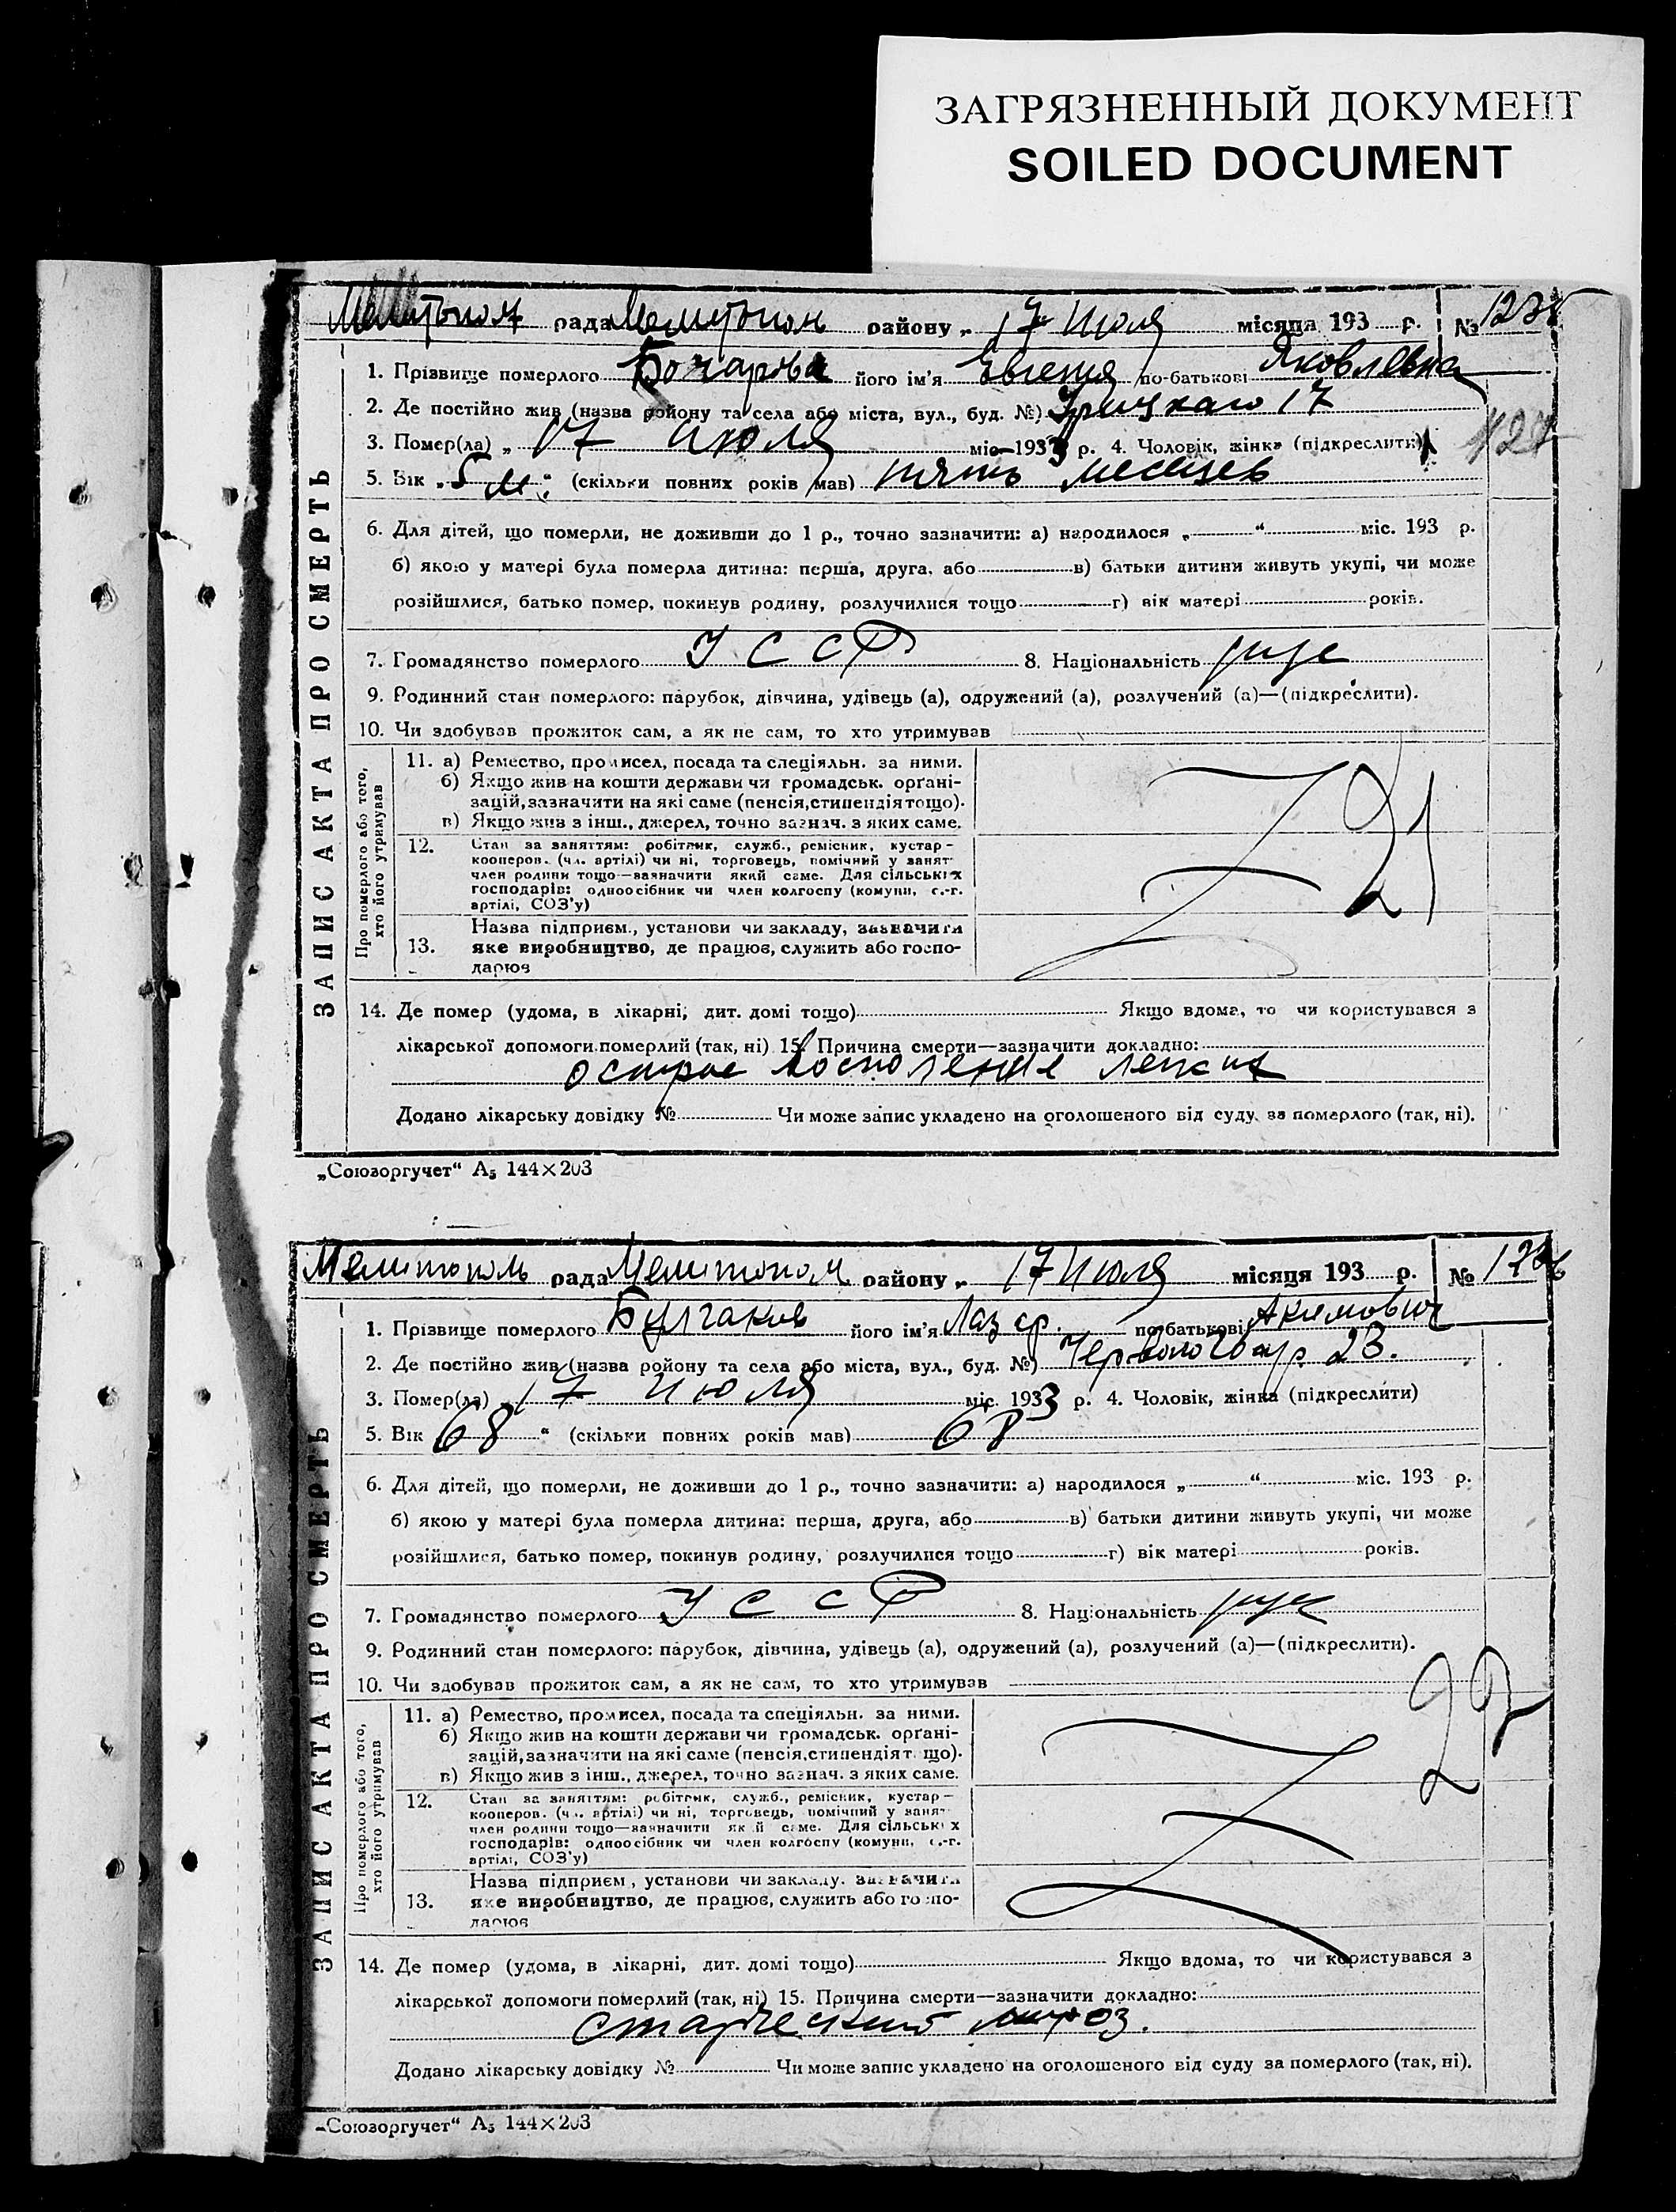 ЗАГРЯЗНЕННЫЙ ДОКУМЕНТ
SOILED DOCUMENT
Мелитопол рада Мелитопол району „ 17 Июля місяця 193 р. №
1. Прізвище померлого Бочарова його ім'я Евгения по-батькові Яковлевна
2. Де постійно жив (назва району та села або міста, вул., буд. №) Урицкаго 17
3. Помер(ла) „ 17 июля міс. 1933 р. 4. Чоловік, жінка (підкреслити)
5. Вік „ 5 м. “ (скільки повних років мав) пять месяцев
6. Для дітей, що померли, не доживши до 1 р., точно зазначити: а) народилося „ “ міс. 193 р.
б) якою у матері була померла дитина: перша, друга, або в) батьки дитини живуть укупі, чи може
розійшлися, батько помер, покинув родину, розлучилися тощо г) вік матері років.
7. Громадянство померлого УССР 8. Національність рус
9. Родинний стан померлого: парубок, дівчина, удівець (а), одружений (а), розлучений (а)—(підкреслити).
10. Чи здобував прожиток сам, а як не сам, то хто утримував
ЗАПИС АКТА ПРО СМЕРТЬ
Про померлого або того, хто його утримував
11. а) Ремество, промисел, посада та спеціяльн. за ними.
б) Якщо жив на кошти держави чи громадськ. орґані-
зацій, зазначити на які саме (пенсія, стипендія тощо).
в) Якщо жив з інш., джерел, точно зазнач. з яких саме.
21
12. Стан за заняттям: робітник, служб., ремісник, кустар-
кооперов. (чл. артілі) чи ні, торговець, помічний у занят
член родини тощо—зазначити який саме. Для сільських
господарів: одноосібник чи член колгоспу (комуни, с.-г.
артілі, СОЗ'у)
13. Назва підприєм., установи чи закладу, зазначити
яке виробництво, де працює, служить або госпо-
дарює
14. Де помер (удома, в лікарні, дит. домі тощо) Якщо вдома, то чи користувався з
лікарської допомоги померлий (так, ні) 15. Причина смерти—зазначити докладно:
острое воспаление легких
Додано лікарську довідку № Чи може запис укладено на оголошеного від суду за померлого (так, ні).
„Союзоргучет“ А5 144×203
Мелитополь рада Мелитопол району „ 17 Июля місяця 193 р. №
1. Прізвище померлого Булгаков його ім'я Лазар. по-батькові Акимович
2. Де постійно жив (назва району та села або міста, вул., буд. №) 23.
3. Помер(ла) „ 17 июля міс. 1933 р. 4. Чоловік, жінка (підкреслити)
5. Вік 68 “ (скільки повних років мав) 68
6. Для дітей, що померли, не доживши до 1 р., точно зазначити: а) народилося „ “ міс. 193 р.
б) якою у матері була померла дитина: перша, друга, або в) батьки дитини живуть укупі, чи може
розійшлися, батько помер, покинув родину, розлучилися тощо г) вік матері років.
7. Громадянство померлого УССР 8. Національність рус
9. Родинний стан померлого: парубок, дівчина, удівець (а), одружений (а), розлучений (а)—(підкреслити).
10. Чи здобував прожиток сам, а як не сам, то хто утримував
ЗАПИС АКТА ПРО СМЕРТЬ
Про померлого або того, хто його утримував
11. а) Ремество, промисел, посада та спеціяльн. за ними.
б) Якщо жив на кошти держави чи громадськ. орґані-
зацій, зазначити на які саме (пенсія, стипендія т що).
в) Якщо жив з інш., джерел, точно зазнач. з яких саме.
12. Стан за заняттям: робітник, служб., ремісник, кустар-
кооперов. (чл. артілі) чи ні, торговець, помічний у занят
член родини тощо—зазначити який саме. Для сільських
господарів: одноосібник чи член колгоспу (комуни, с.-г.
артілі, СОЗ'у)
13. Назва підприєм., установи чи закладу, зазначити
яке виробництво, де працює, служить або госпо-
дарює
14. Де помер (удома, в лікарні, дит. домі тощо) Якщо вдома, то чи користувався з
лікарської допомоги померлий (так, ні) 15. Причина смерти—зазначити докладно:
старческий
Додано лікарську довідку № Чи може запис укладено на оголошеного від суду за померлого (так, ні).
„Союзоргучет“ А5 144×203